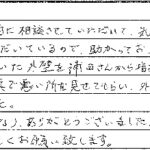 に相談させていただいて、気
だいているので、助かってお
いた外壁を浦田さんから塗
真で悪い所を見せてもらい、外
た。
なり、ありがとうございました。
しくお願い致します。